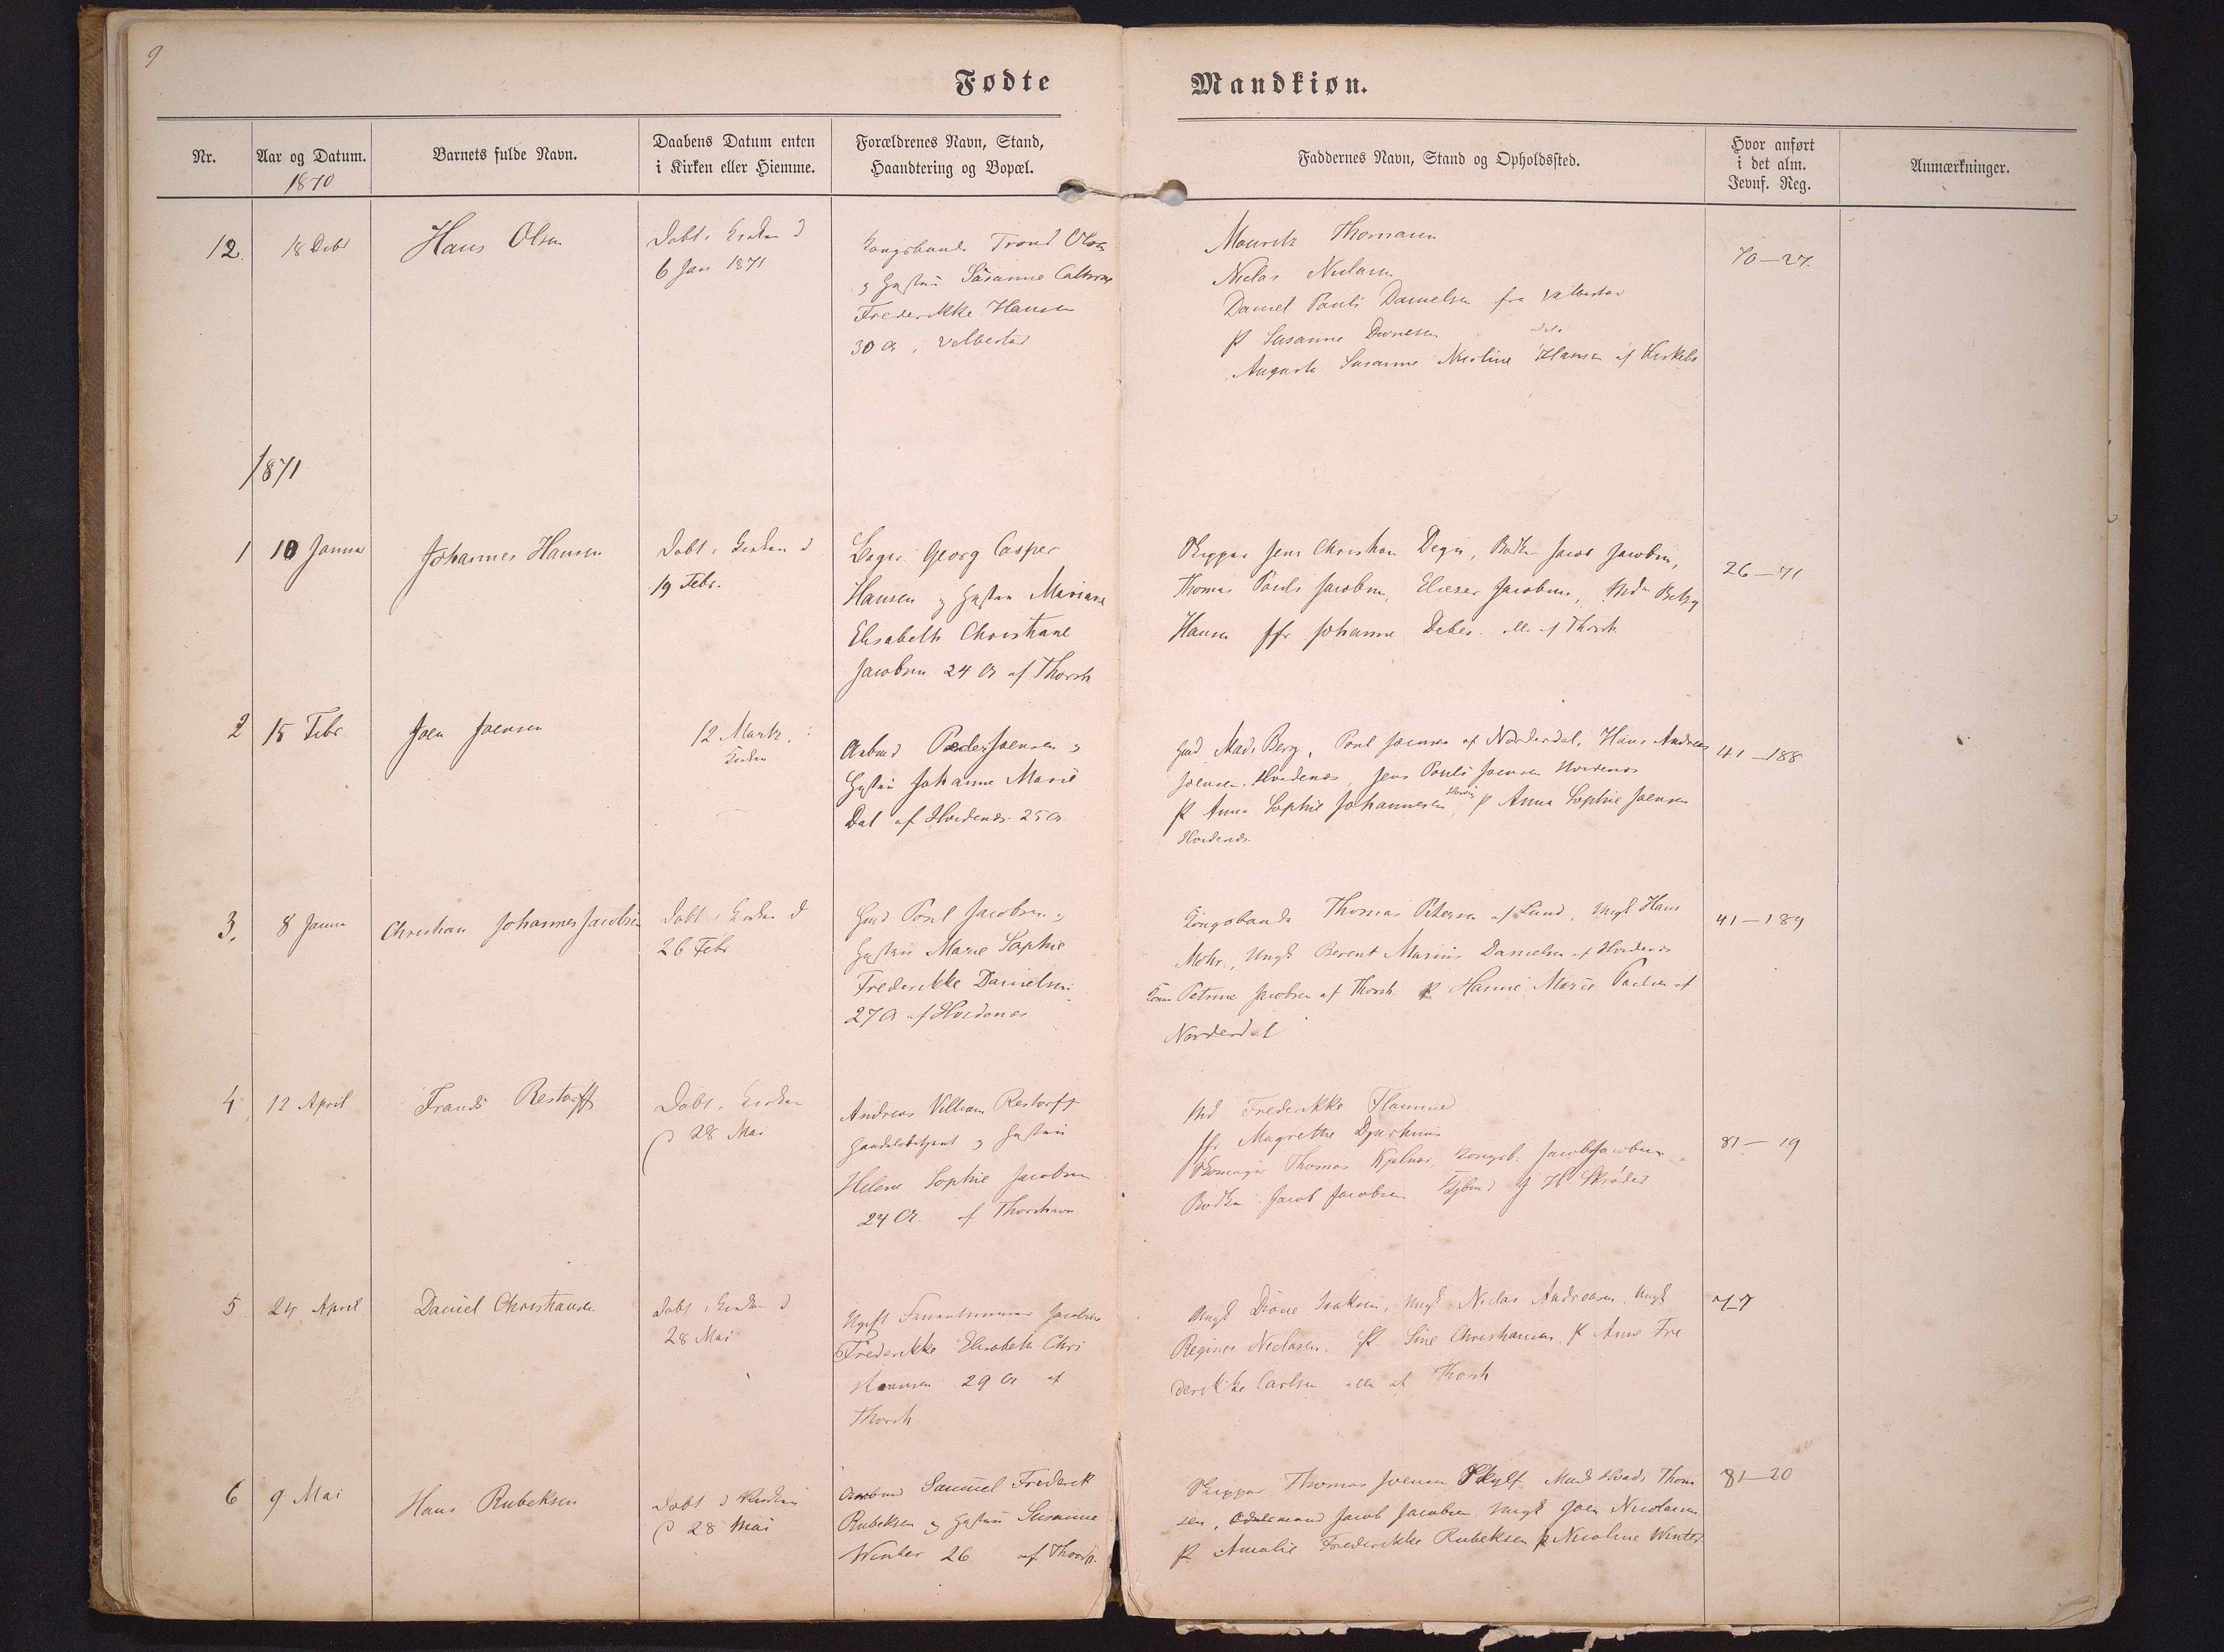 9
Fødte
Mandkiøn.
Nr.
Aar og Datum.
1870
Barnets fulde Navn.
Daabens Datum enten
i Kirken eller Hiemme.
Forældrenes Navn, Stand,
Haandtering og Bopæl.
Faddernes Navn, Stand og Opholdssted.
Hvor anført
i det alm.
Jevnf. Reg.
Anmærkninger.
12.
18 Debr
Hans Olsen
Døbt i Kirken d
6 Jan 1871
Kongsbonde Trond Olsen
og Hustru Susanne
Frederikke Hansen
30 A, Velbestad
Mouritz Thomasen
Niclas Niclasen
Daniel Pouls Danielsen fra Velbestad
P Susanne
Susanne Nicoline Hansen af Kirkebø
70-27.
1871
1
10 Januar
Johannes Hansen
Døbt i Kirken d
19 Febr.
Bager Georg Casper
Hansen og Hustru Mariane
Elisabeth Christiane
Jacobsen 24 A af Thorsh
Skipper Jens Christian Degn, Jacob Jacobsen,
Thomas Pouls Jacobsen, Elieser Jacobsen, Md Betzy
Hansen Jfr Johanne Debes alle af Thorsh
26-71
2
15 Febr
Joen Joensen
12 Marts i
Kirken
Peder Joensen og
Hustru Johanne Marie
Dal af Hvidenæs 25 A
Mads Berg, Poul Joensen af Norderdal, Hans Andreas
Joensen Hvidenæs, Jens Pouls Joensen Hvidenæs
P Anna Sophie Johannesen P Anna Sophie Joensen
Hvidenæs.
41-188
3.
8 Januar
Christian Johannes Jacobsen
Døbt i Kirken d
26 Febr
Poul Jacobsen og
Hustru Marie Sophie
Frederikke Danielsen
27 A af Hvidenæs
Kongsbonde Thomas Petersen af Sund, Ungk Hans
Mohr, Ungk Berent Marius Danielsen af Hvidenæs
Kone Petrine Jacobsen af Thorsh P Hanne Marie af
Norderdal
41-189
4
12 April
Frands Restorff
Døbt i Kirken
d 28 Mai
Andreas Villiam Restorff
Handelsbetjent og Hustru
Helene Sophie Jacobsen
24 A. af Thorshavn
Md Frederikke Flamme
Jfr Magrethe Djurhuus
Skomager Thomas Kjelnæs, Kongsb. Jacob Jacobsen
Jacob Jacobsen J H Schrøder
81-19
5
24 April
Daniel Christiansen
Døbt i Kirken d
28 Mai
Ugift Fruentimmer Jacobine
Frederikke Elisabeth Chri
stiansen 29 A af
Thorsh.
Ungk Isaksen, Ungk Niclas Andreasen Ungk
Regines Niclasen. P. Sine Christiansen P Anne Fre
derikke Carlsen alle af Thorsh
7
6
9 Mai
Hans Rubeksen
Døbt i Kirken
d 28 Mai
Samuel Frederik
Rubeksen og Hustru Susanne
Winther 26 af Thorsh.
Skipper Thomas Joensen Thom
sen, Jacob Jacobsen Ungk Joen Nicolaisen
P. Amalie Frederikke Rubeksen P Nicoline Winther
81-20